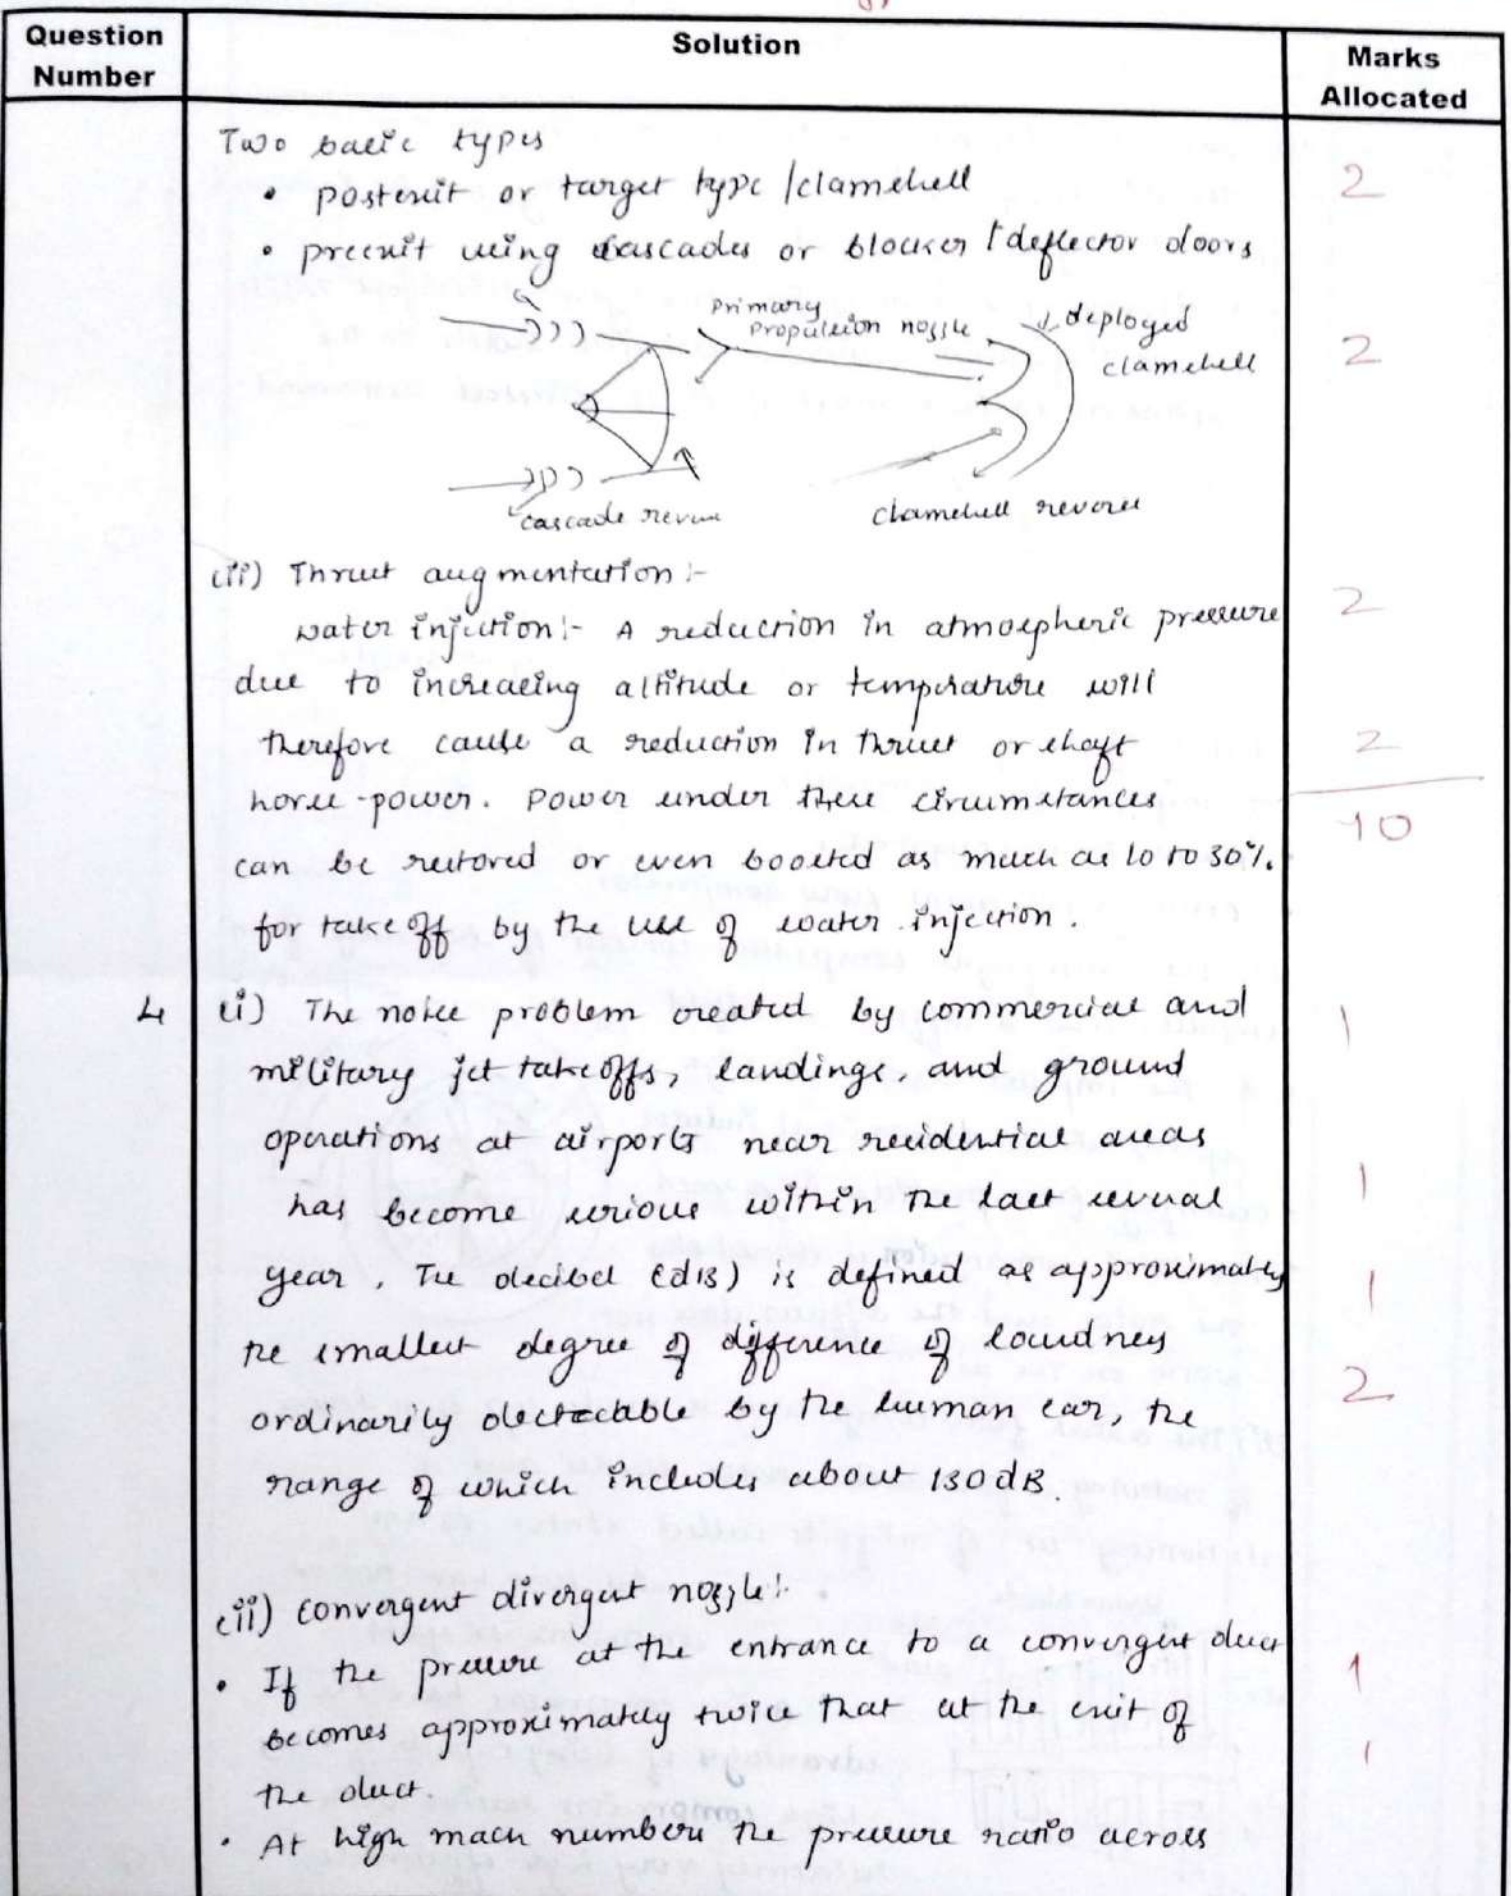 Question Number
Solution
Marks Allocated
Two basic types
• postexit or target type /clamshell
• preexit using cascades or blocker / deflector doors
2
primary
propulsion nozzle
deployed
clamshell
2
cascade reverse
clamshell reverse
(ii) Thrust augmentation :-
water injection:- A reduction in atmospheric pressure
2
due to increasing altitude or temperature will
therefore cause a reduction in thrust or shaft
2
horse-power. Power under these circumstances
10
can be restored or even boosted as much as 10 to 30%.
for take off by the use of water injection.
4
(i) The noise problem created by commercial and
1
military jet takeoffs, landings, and ground
operations at airports near residential areas
has become serious within the last several
1
year. The decibel (dB) is defined as approximately
1
the smallest degree of difference of loudness
2
ordinarily dectectable by the human ear, the
range of which includes about 130 dB.
(ii) convergent divergent nozzle:-
• If the pressure at the entrance to a convergent duct
1
becomes approximately twice that at the exit of
1
the duct.
• At high mach numbers the pressure ratio across